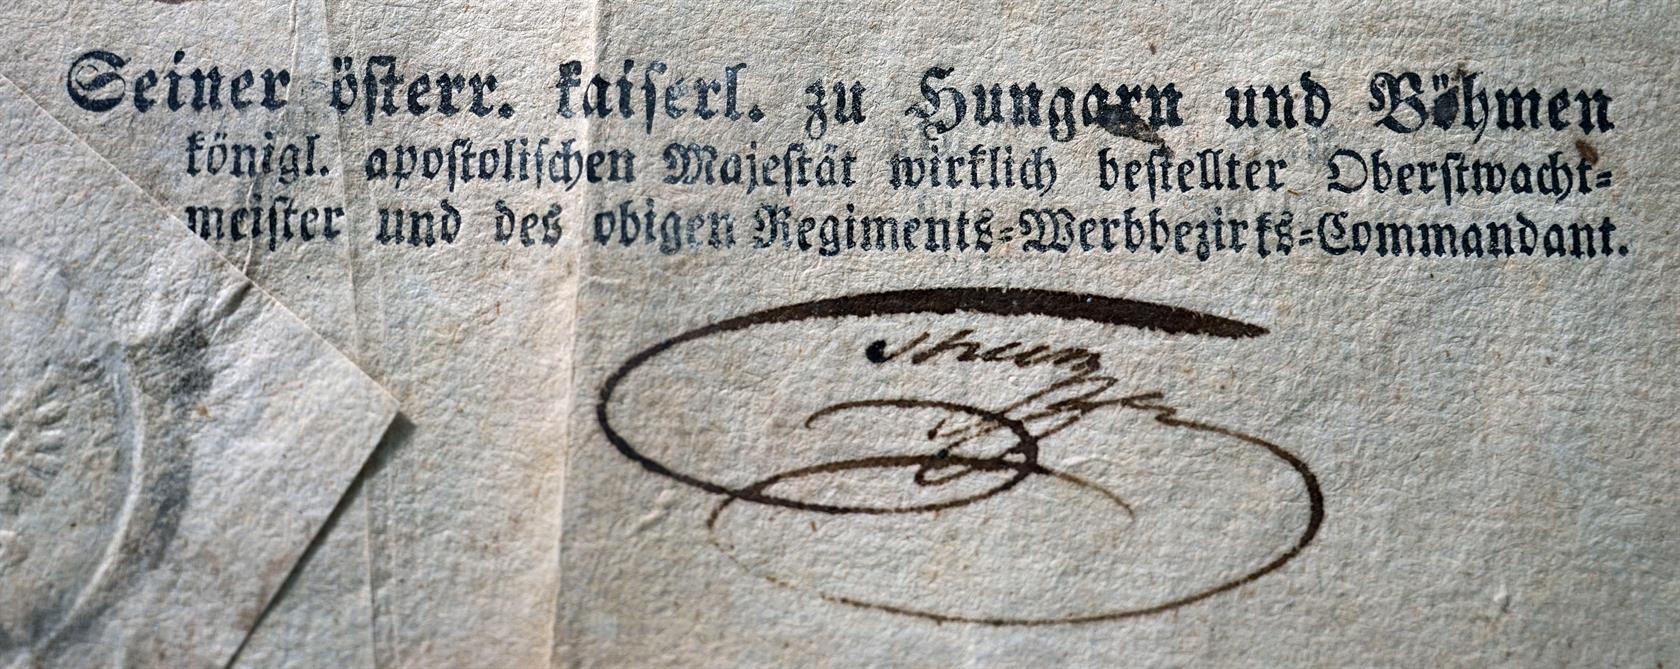 Seiner österr. kaiserl. zu Hungarn und Böhmen
königl. apostolischen Majestät wirklich bestellter Oberstwacht=
meister und des obigen Regiments=Werbbezirks=Commandant.